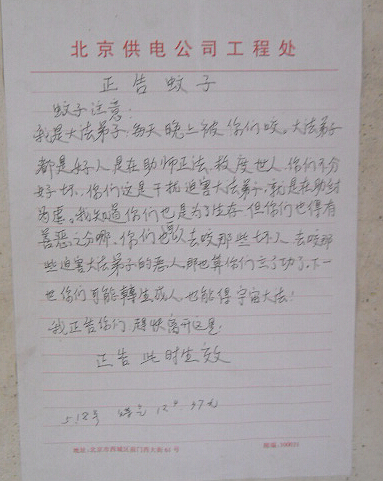 北京供电公司工程处
正告蚊子
蚊子注意:
我是大法弟子,每天晚上被你们咬。大法弟子
都是好人是在助师正法,救度世人,你们不分
好坏,你们这是干扰迫害大法弟子,就是在助纣
为虐。我知道你们也是为了生存,但你们也得有
善恶之分哪。你们可以去咬那些坏人,去咬那
些迫害大法弟子的恶人,那也算你们立了功了。下一
世你们可能轉生成人,也能得宇宙大法!
我正告你们 趕快离开这里.
正告此时生效
5.18号
地址:北京市西城区前门西大街41号
邮编:100031